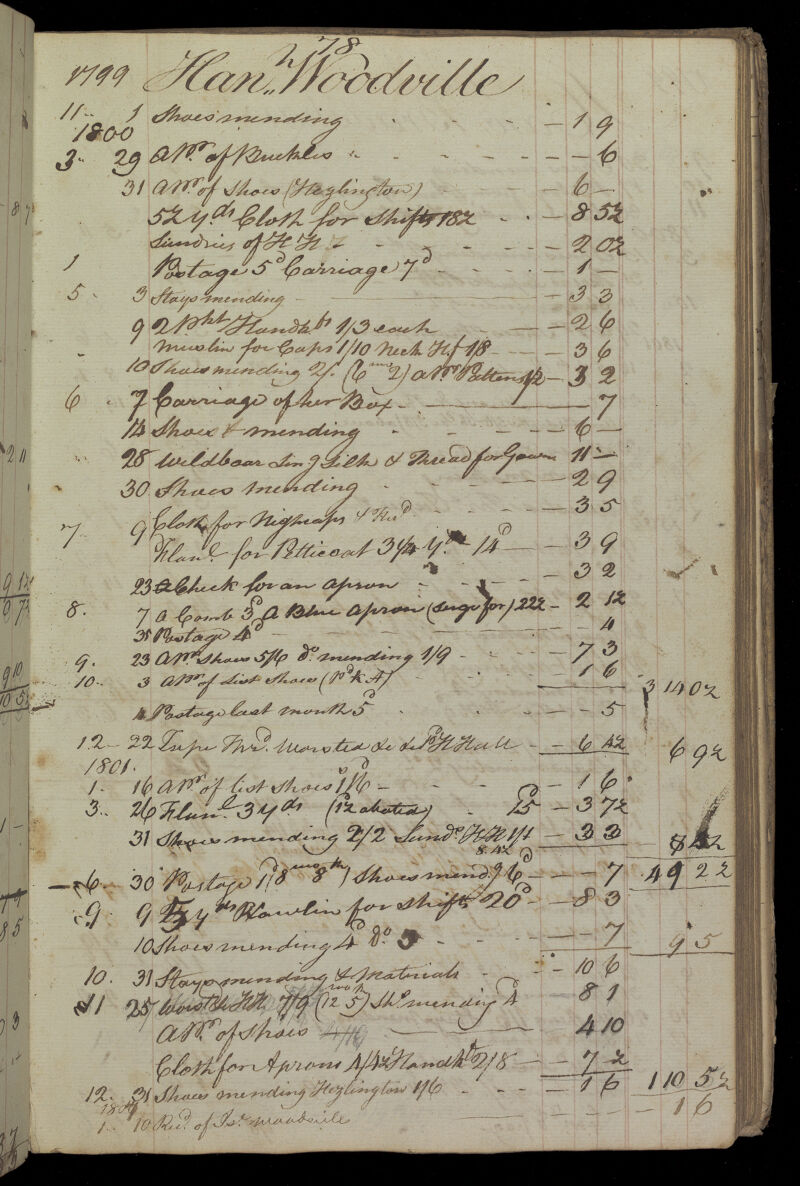 78
1799 Han.h Woodville
11 1 Shoes mending - 1 9
1800
3 29 A Pr. of Buckles - - 6
31 A Pr. of Shoes (Hezlington) 6 -
5½ yds Cloth for Shifts 18½ 8 5½
Sundries of H H - 2 0½
1 Postage 5d Carriage 7d - 1 -
5 3 Stays mending 3 3
9 2 Pkt Handkfs 1/3 each 2 6
Muslin for Caps 1/10 Neck Hf 1/8 3 6
10 Shoes mending 2/. A Pr. Pattens 1/2 3 2
6 7 Carriage of her Box - 7
14 Shoes & mending 6 -
28 Wildboar Silk & Thread for Gown 11 -
30 Shoes mending 2 9
7 9 Cloth for Nightcaps & Thrd 3 5
Flanl. for Petticoat 3¼ yds 14d 3 9
23 Check for an apron 3 2
8. 7 A Comb 3d A Blue Apron (Serge for) 22½ 2 1½
31 Postage 4d - 4
9. 23 A Pr. Shoes 5/6 do. mending 1/9 7 3
10 3 A Pr. of List Shoes 1 6 3 14 0½
4 Postage last month 5d - 5
12 22 Tape Thrd. Worsted &c H Hall 6 4½ 6 9½
1801.
1 16 A Pr. of list Shoes 1/6 - 1 6
3 26 Flanl. 3 yds (1½ abated) 15d 3 7½
31 Shoes mending 2/2 Sunds. H H 1/1 3 3 8 4½
8. 4½
6 30 Postage 1d Shoes mendg 6d 7 4 9 2½
9 9 5 yds Rawlin for Shifts 20d 8 3
10 Shoes mending 4d do 3 - 7 9 5
10. 31 Stays mending & Materials 10 6
11 25 Worstd H H 7/9 Sho. mending 4 8 1
A Pr. of Shoes 4/10 4 10
Cloth for Aprons 4/4½ Handkf 2/8 7 ½
12. 31 Shoes mending Hezlington 1/6 1 6 1 10 5½
1 10 Recd. of Jsh. Woodville - 1 6